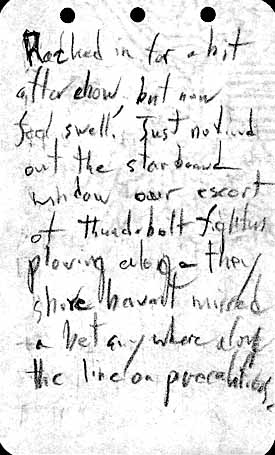 Racked in for a bit
after chow, but now
feel swell. Just noticed
out the starboard
window our escort
of Thunderbolt fighters
plowing along - they
shore haven't missed
a bet anywhere along
the line on precautions.